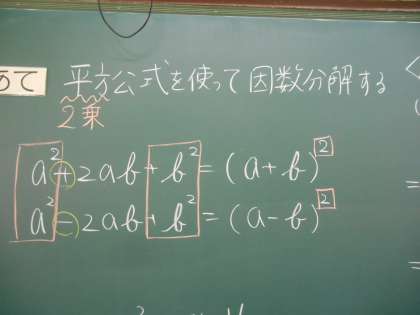 めあて 平方公式を使って因数分解する
2乗
a²+2ab+b²=(a+b)²
a²-2ab+b²=(a-b)²